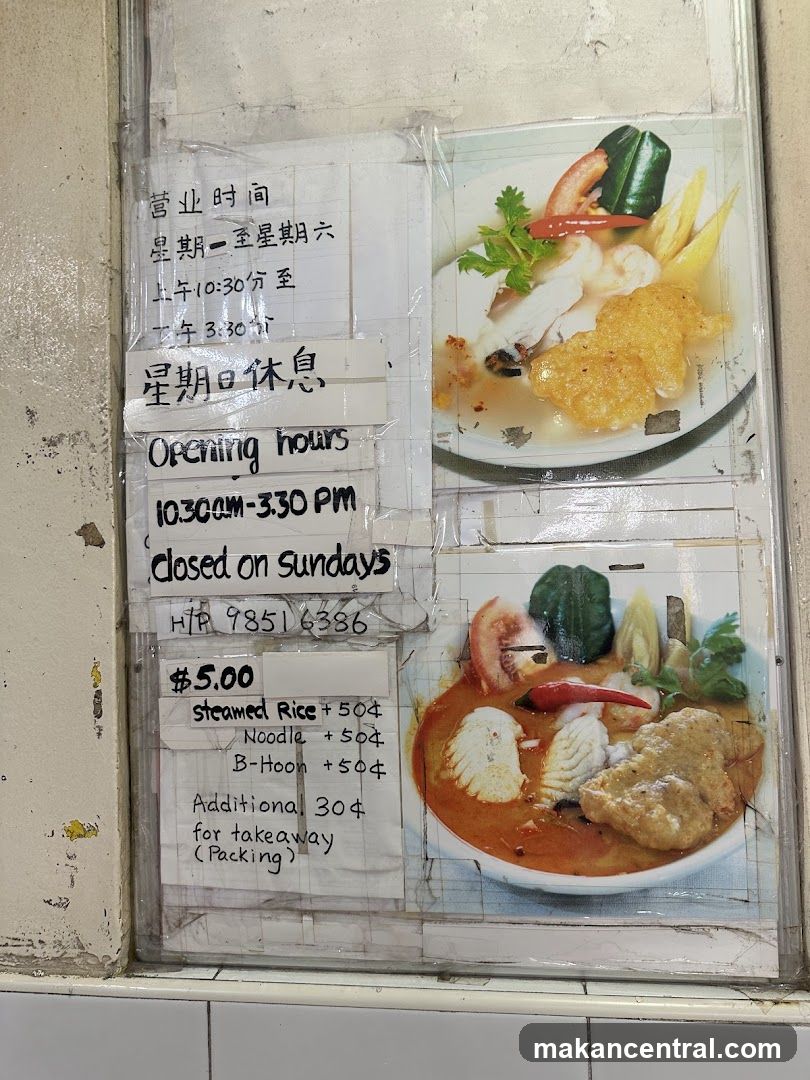 营业时间
星期一至星期六
上午10:30分至
下午3:30分
星期日休息
Opening hours
10.30am-3.30 PM
closed on sundays
H/P 98516386
$5.00
steamed Rice + 50¢
Noodle + 50¢
B-Hoon + 50¢
Additional 30¢
for takeaway
(Packing)
makancentral.com